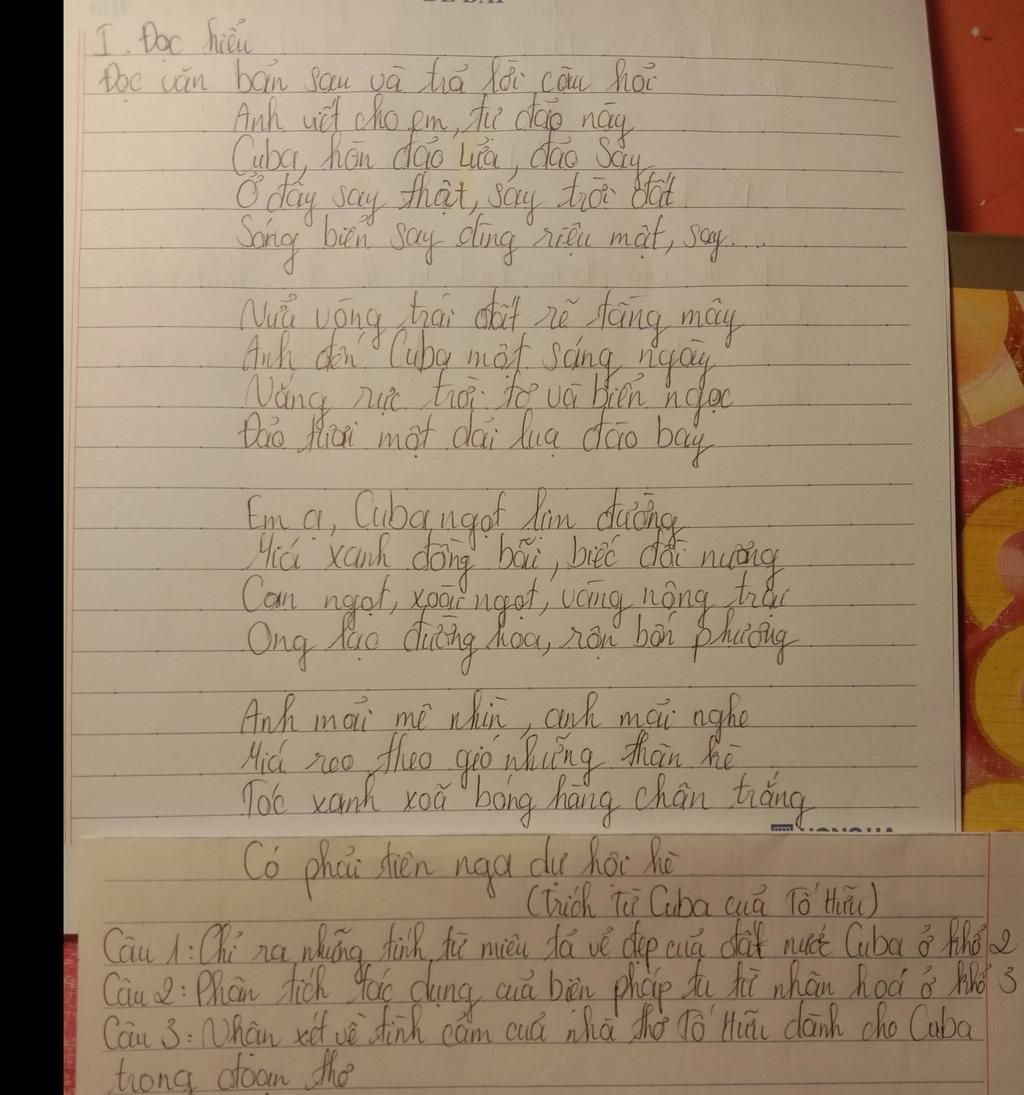 ĐỀ BÀI
I. Đọc hiểu
Đọc văn bản sau và trả lời câu hỏi
Anh viết cho em, từ đảo này
Cuba, hòn đảo lửa, đảo say
Ở đây say thật, say trời đất
Sóng biển say cùng rượu mật, say....
Nửa vòng trái đất rẽ tầng mây
Anh đến Cuba một sáng ngày
Nắng rực trời tơ và biển ngọc
Đảo tươi một dải lụa đào bay
Em ạ, Cuba ngọt lịm đường
Mía xanh đồng bãi, biếc đồi nương
Cam ngọt, xoài ngọt, vàng nông trại
Ong lạc đường hoa, rộn bốn phương
Anh mải mê nhìn, anh mải nghe
Mía reo theo gió những thân kè
Tóc xanh xoã bóng hàng chân trắng
Có phải tiên nga dự hội hè
(Trích Từ Cuba của Tố Hữu)
Câu 1: Chỉ ra những tính từ miêu tả vẻ đẹp của đất nước Cuba ở khổ 2
Câu 2: Phân tích tác dụng của biện pháp tu từ nhân hoá ở khổ 3
Câu 3: Nhận xét về tình cảm của nhà thơ Tố Hữu dành cho Cuba
trong đoạn thơ